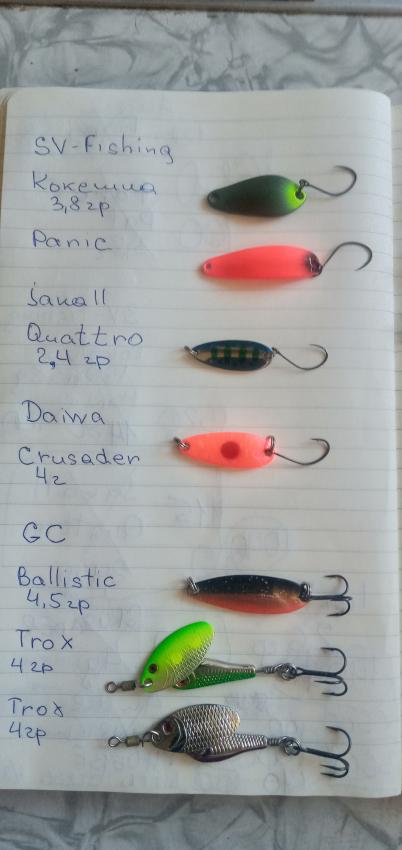 SV-Fishing
Кокетша
3,8 гр
Panic
Jawall
Quattro
2,4 гр
Daiwa
Crusader
4г
GC
Ballistic
4,5 гр
Trox
4 гр
Trox
4гр